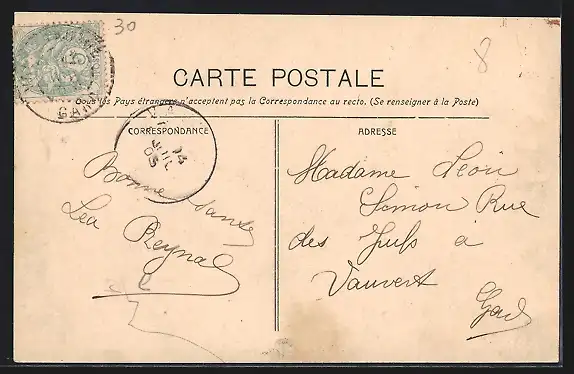 30
8
CARTE POSTALE
Tous les Pays étrangers n'acceptent pas la Correspondance au recto. (Se renseigner à la Poste)
CORRESPONDANCE
ADRESSE
14
JUIL
05
GARD
Bonne santé
Léa Reynal
Madame Léon
Simon Rue
des Juifs a
Vauvert
Gard